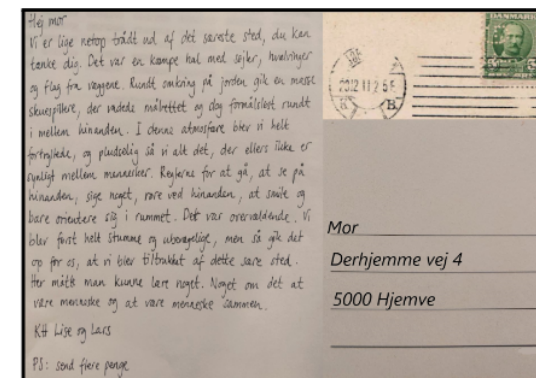 Hej mor
Vi er lige netop trådt ud af det særeste sted, du kan
tænke dig. Det var en kæmpe hal med sejler, hvælvinger
og flag fra væggene. Rundt omkring på jorden gik en masse
skuespillere, der vadede målrettet og dog formålsløst rundt
i mellem hinanden. I denne atmosfære blev vi helt
fortryllede, og pludselig så vi alt det, der ellers ikke er
synligt mellem mennesker. Reglerne for at gå, at se på
hinanden, sige noget, røre ved hinanden, at smile og
bare orientere sig i rummet. Det var overvældende. Vi
blev først helt stumme og ubevægelige, men så gik det
op for os, at vi blev tiltrukket af dette sære sted.
Her måtte man kunne lære noget. Noget om det at
være menneske og at være menneske sammen.
KH Lise og Lars
PS: send flere penge
DANMARK
K B
Mor
Derhjemme vej 4
5000 Hjemve